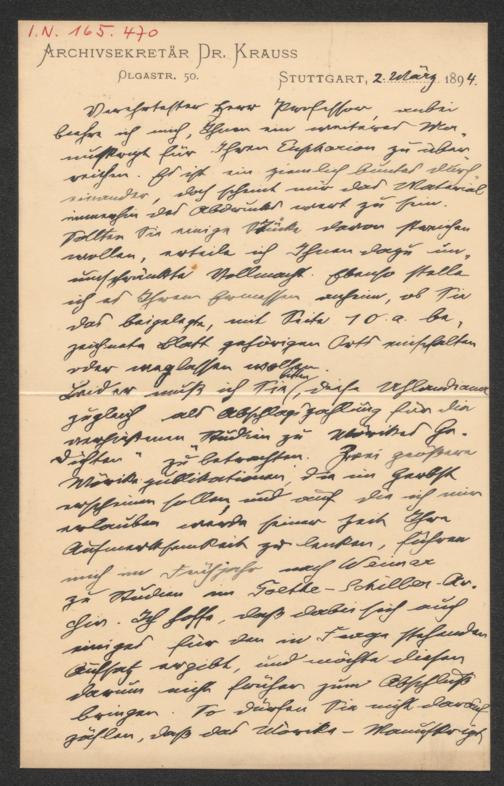 I.N. 165.470
ARCHIVSEKRETÄR DR. KRAUSS
OLGASTR. 50.
STUTTGART, 2. März 1894.
Verehrtester Herr Professor, anbei
beehre ich mich, Ihnen ein weiteres Ma-
nuskript für Ihren Euphorion zu über-
reichen. Es ist ein ziemlich buntes Durch
einander, doch scheint mir das Material
immerhin des Abdrucks wert zu sein.
Sollten Sie einige Stücke davon streichen
wollen, erteile ich Ihnen dazu un-
umschränkte Vollmacht. Ebenso stelle
ich es Ihrem Ermessen anheim, ob Sie
das beigelegte, mit Seite 10.a. be-
zeichnete Blatt gehörigen Orts einschalten
oder weglassen wollen.
Leider muß ich Sie bitten, diese Uhlandiana
zugleich als Abschlagszahlung für die
verheißenen "Studien zu Mörikes Ge-
dichten" zu betrachten. Zwei größere
Mörikepublikationen, die im Herbst
erscheinen sollen, und auf die ich mir
erlauben werde seiner Zeit Ihre
Aufmerksamkeit zu lenken, führen
mich im Frühjahr nach Weimar
zu Studien im Goethe-Schiller-Ar-
chiv. Ich hoffe, daß dabei sich auch
einiges für den in Frage stehenden
Aufsatz ergibt, und möchte diesen
darum nicht früher zum Abschluß
bringen. So dürfen Sie nicht darauf
zählen, daß das Mörike-Manuskript